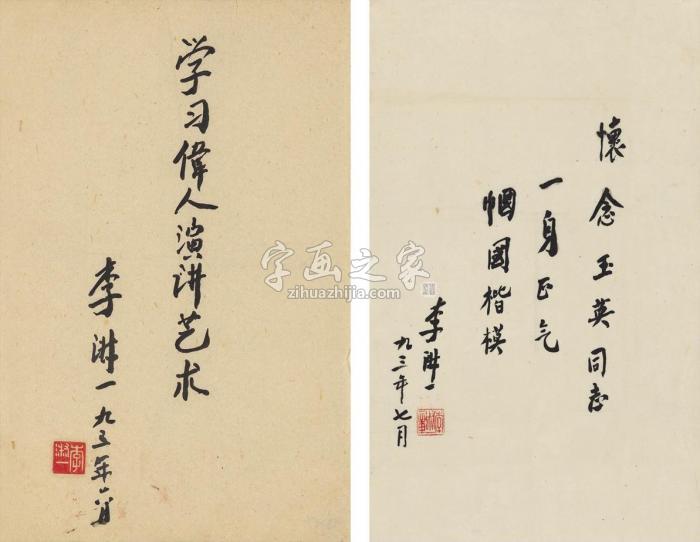 学习偉人演讲艺术
李淑一 九三年六月
李淑一
懷念玉英同志
一身正气
帼国楷模
李淑一
九三年七月
字画之家
zihuazhijia.com